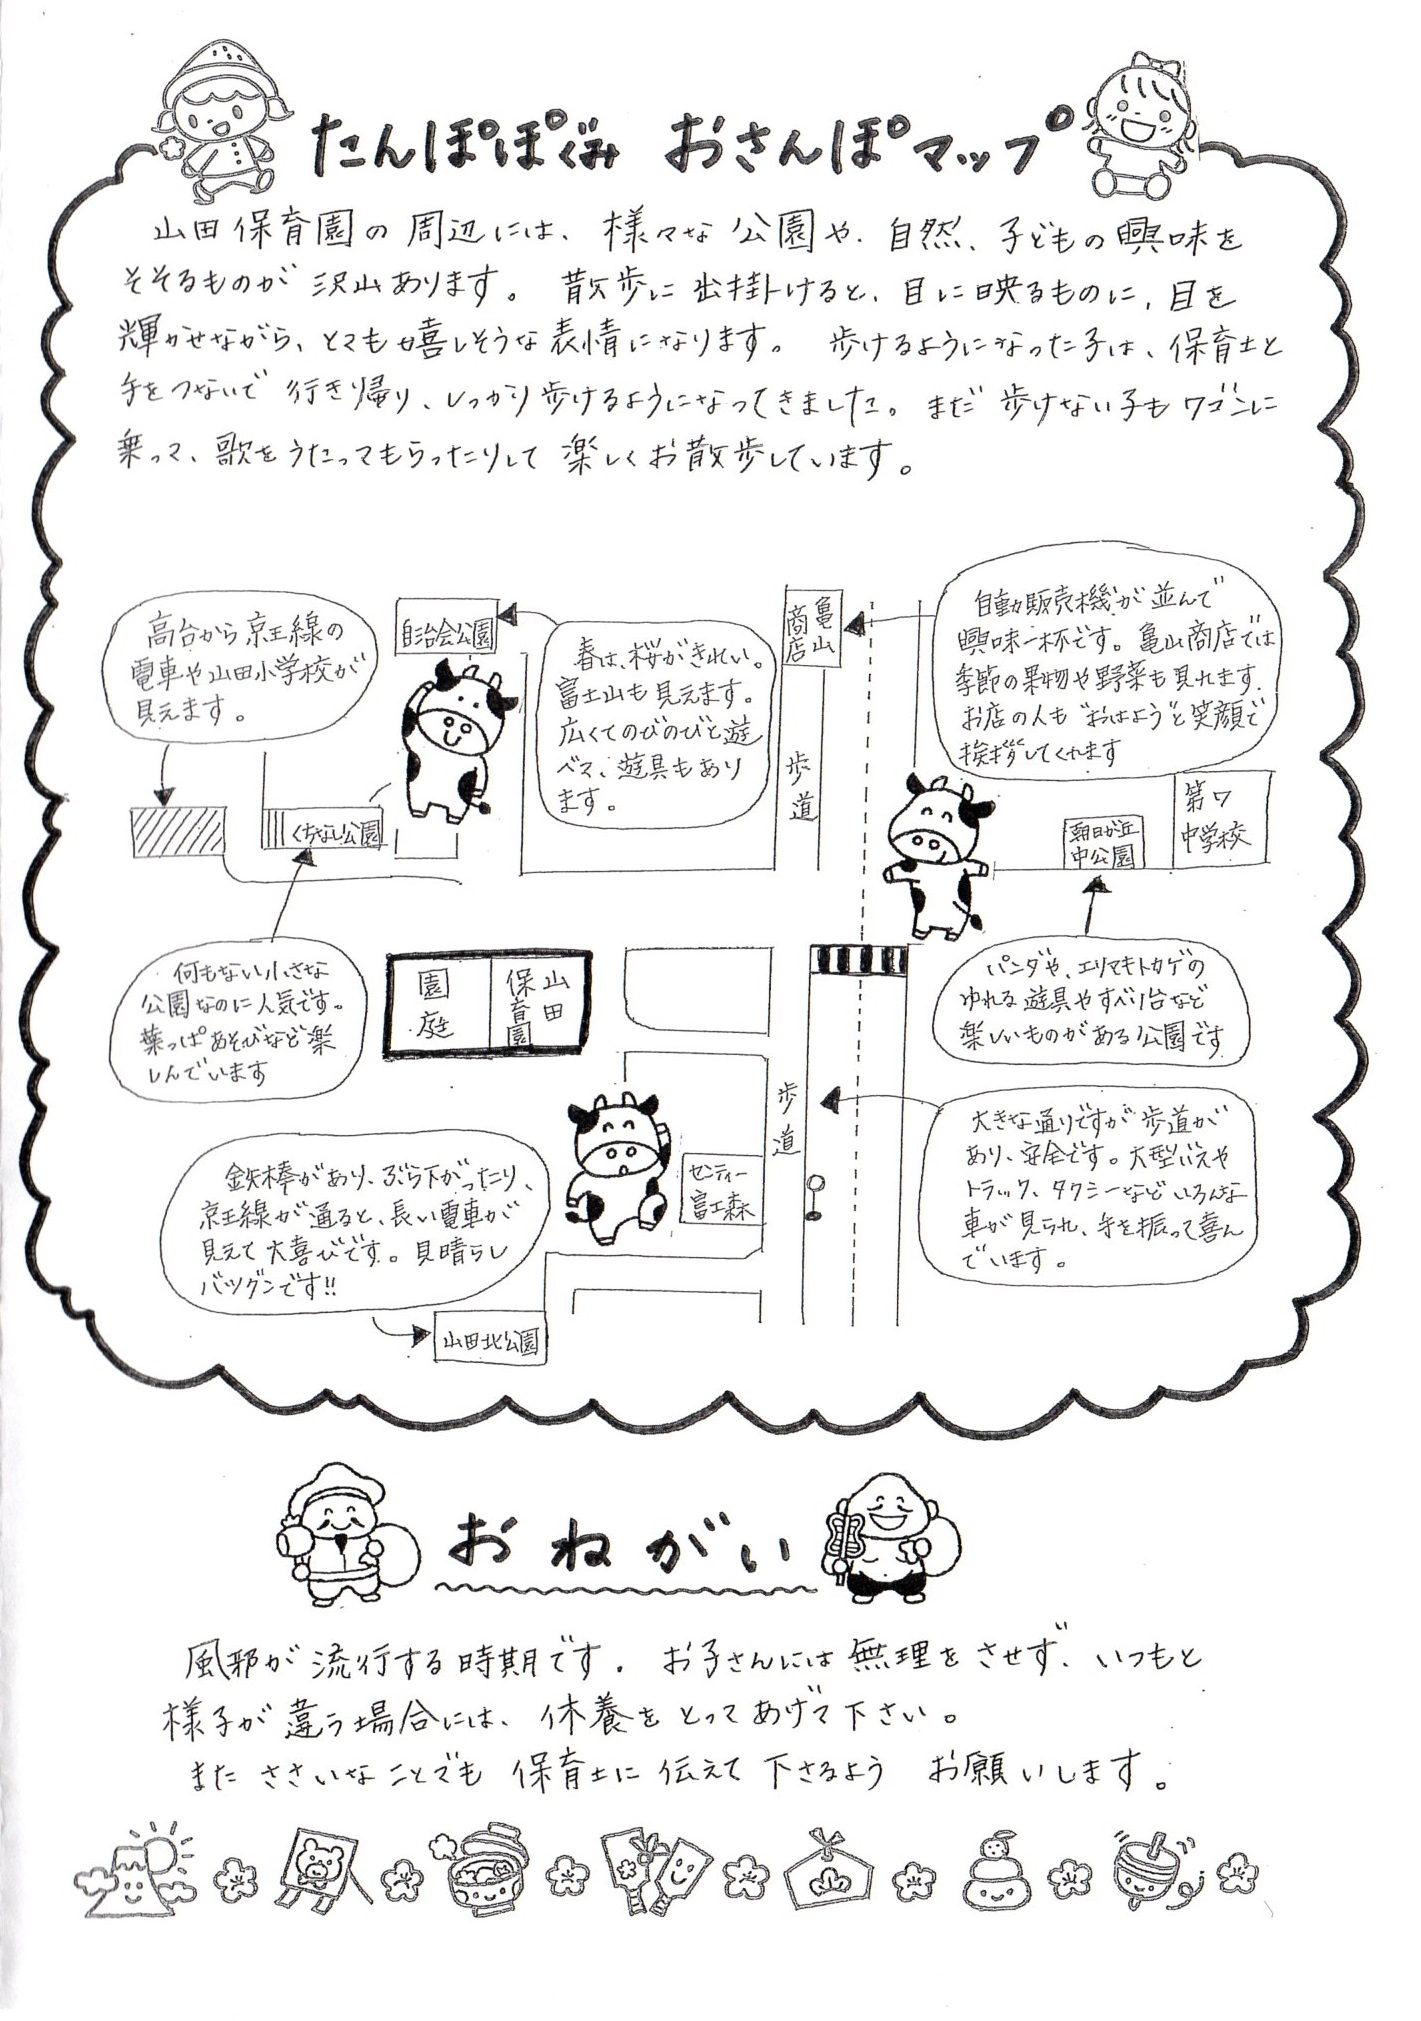 たんぽぽぐみ おさんぽマップ
山田保育園の周辺には、様々な公園や、自然、子どもの興味を
そそるものが沢山あります。 散歩に出掛けると、目に映るものに、目を
輝かせながら、とても嬉しそうな表情になります。 歩けるようになった子は、保育士と
手をつないで行き帰り、しっかり歩けるようになってきました。まだ歩けない子もワゴンに
乗って、歌をうたってもらったりして楽しくお散歩しています。
高台から京王線の
電車や山田小学校が
見えます。
自治会公園
春は、桜がきれい。
富士山も見えます。
広くてのびのびと遊
べて、遊具もあり
ます。
亀山
商店
自動販売機が並んで
興味一杯です。亀山商店では
季節の果物や野菜も見れます。
お店の人も“おはよう”と笑顔で
挨拶してくれます
歩道
くちなし公園
朝日が丘
中公園
第7
中学校
何もない小さな
公園なのに人気です。
葉っぱあそびなど楽
しんでいます
園庭
山田
保育園
パンダや、エリマキトカゲの
ゆれる遊具やすべり台など
楽しいものがある公園です
歩道
大きな通りですが歩道が
あり、安全です。大型バスや
トラック、タクシーなどいろんな
車が見られ、手を振って喜ん
でいます。
鉄棒があり、ぶら下がったり、
京王線が通ると、長い電車が
見えて大喜びです。見晴らし
バツグンです!!
センティー
富士森
山田北公園
おねがい
風邪が流行する時期です。お子さんには無理をさせず、いつもと
様子が違う場合には、休養をとってあげて下さい。
またささいなことでも保育士に伝えて下さるよう お願いします。